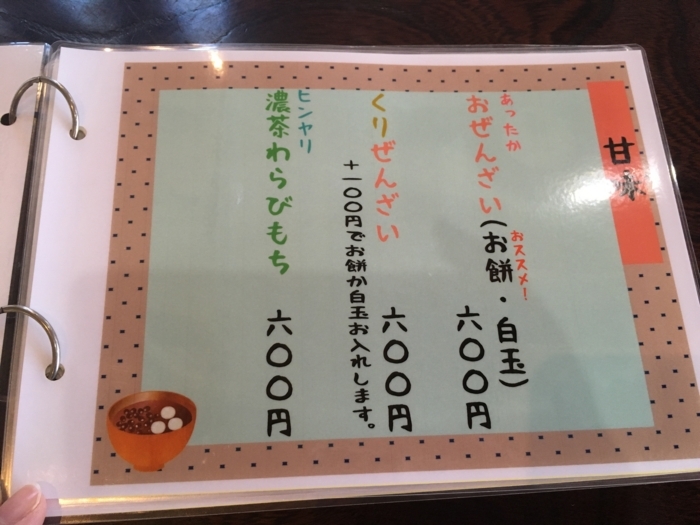 甘味
あったか
おぜんざい(お餅・白玉)
おススメ!
六〇〇円
くりぜんざい
六〇〇円
+一〇〇円でお餅か白玉お入れします。
ヒンヤリ
濃茶わらびもち
六〇〇円